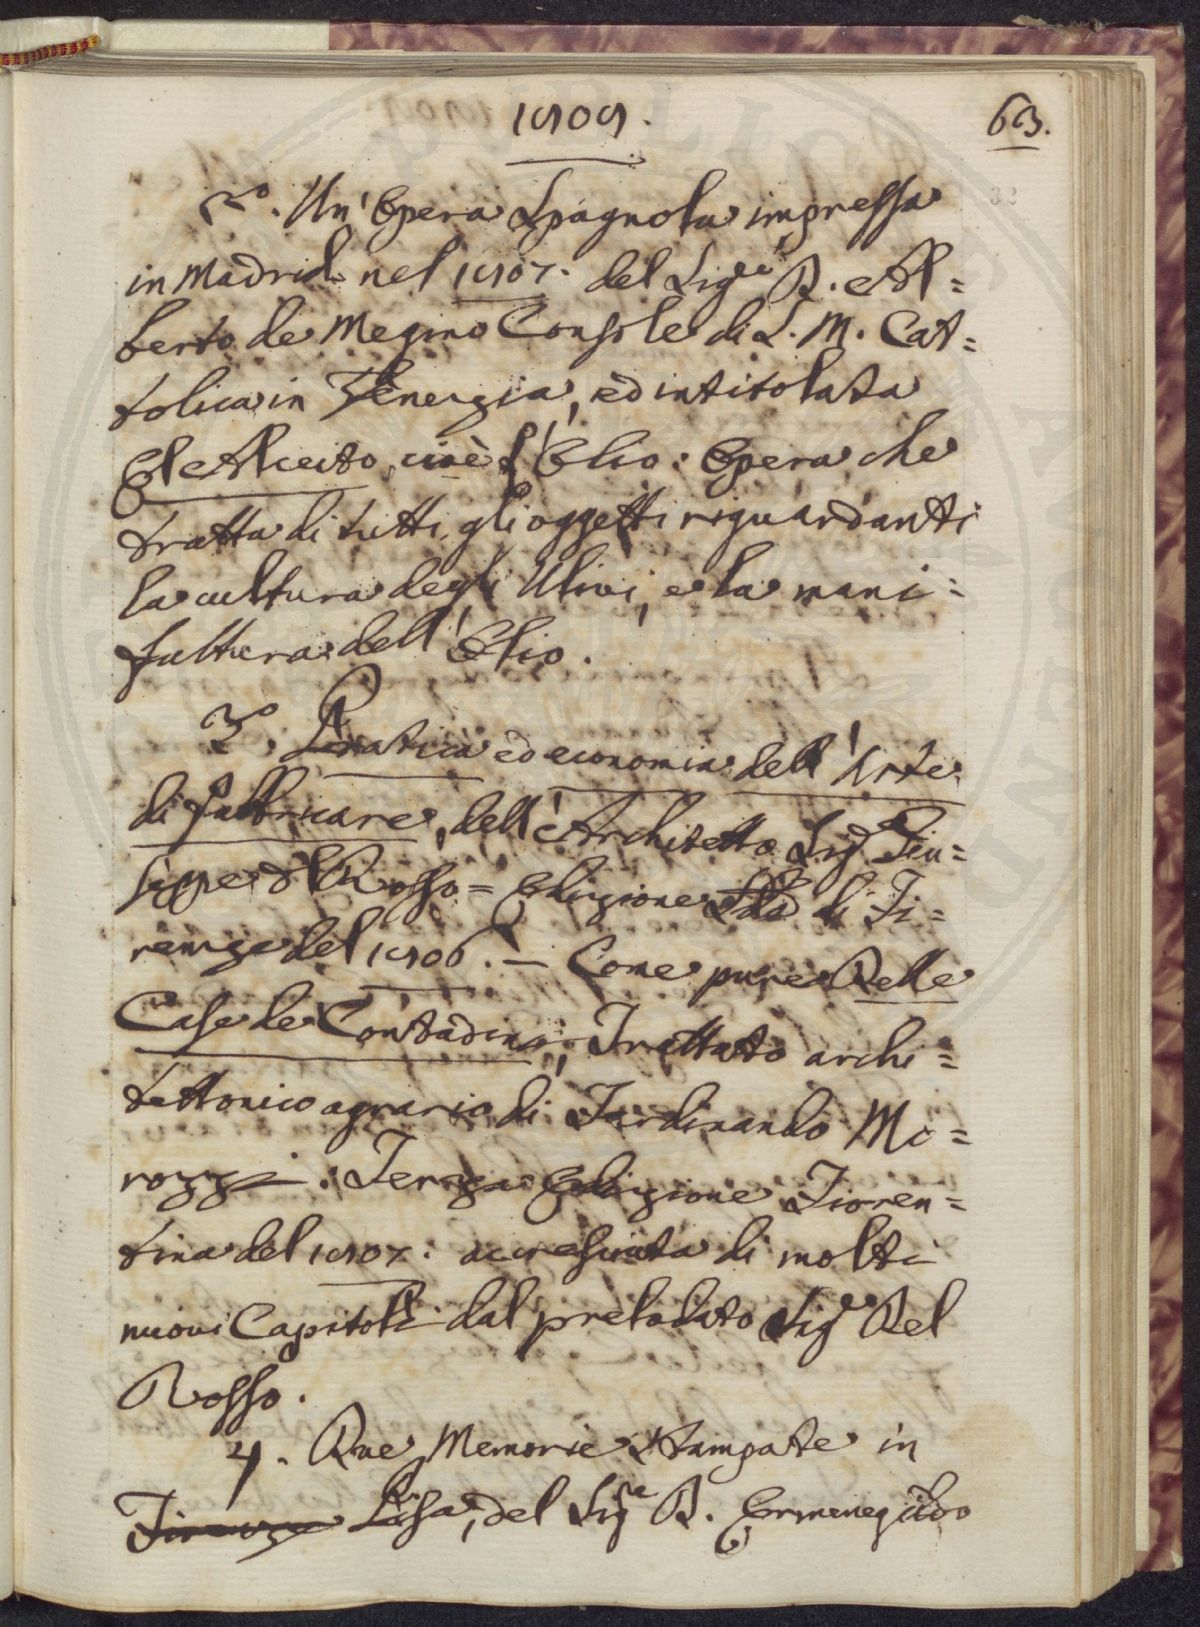 1809.
63.
2º. Un' Opera Spagnola impressa
in Madrid nel 1807. del Sigre D. Al=
berto de Megino Console di S. M. Cat=
tolica in Venezia, ed intitolata
El Aceito, cioè l'Olio: Opera che
tratta di tutti gli oggetti riguardanti
la cultura degli Ulivi, e la mani=
fattura dell'Olio.
3º. Pratica ed economia dell'Arte
di fabbricare, dell'Architetto Sigr Giu=
seppe del Rosso = Edizione di Fi=
renze del 1806. — Come pure Delle
Case de Contadini, Trattato archi=
tettonico agrario di Ferdinando Mo=
rozzi. Terza Edizione Fioren=
tina del 1807: accresciuta di molti
nuovi Capitoli dal prelodato Sigr Del
Rosso.
4. Due Memorie stampate in
Firenze Pisa, del Sigre D. Ermenegildo